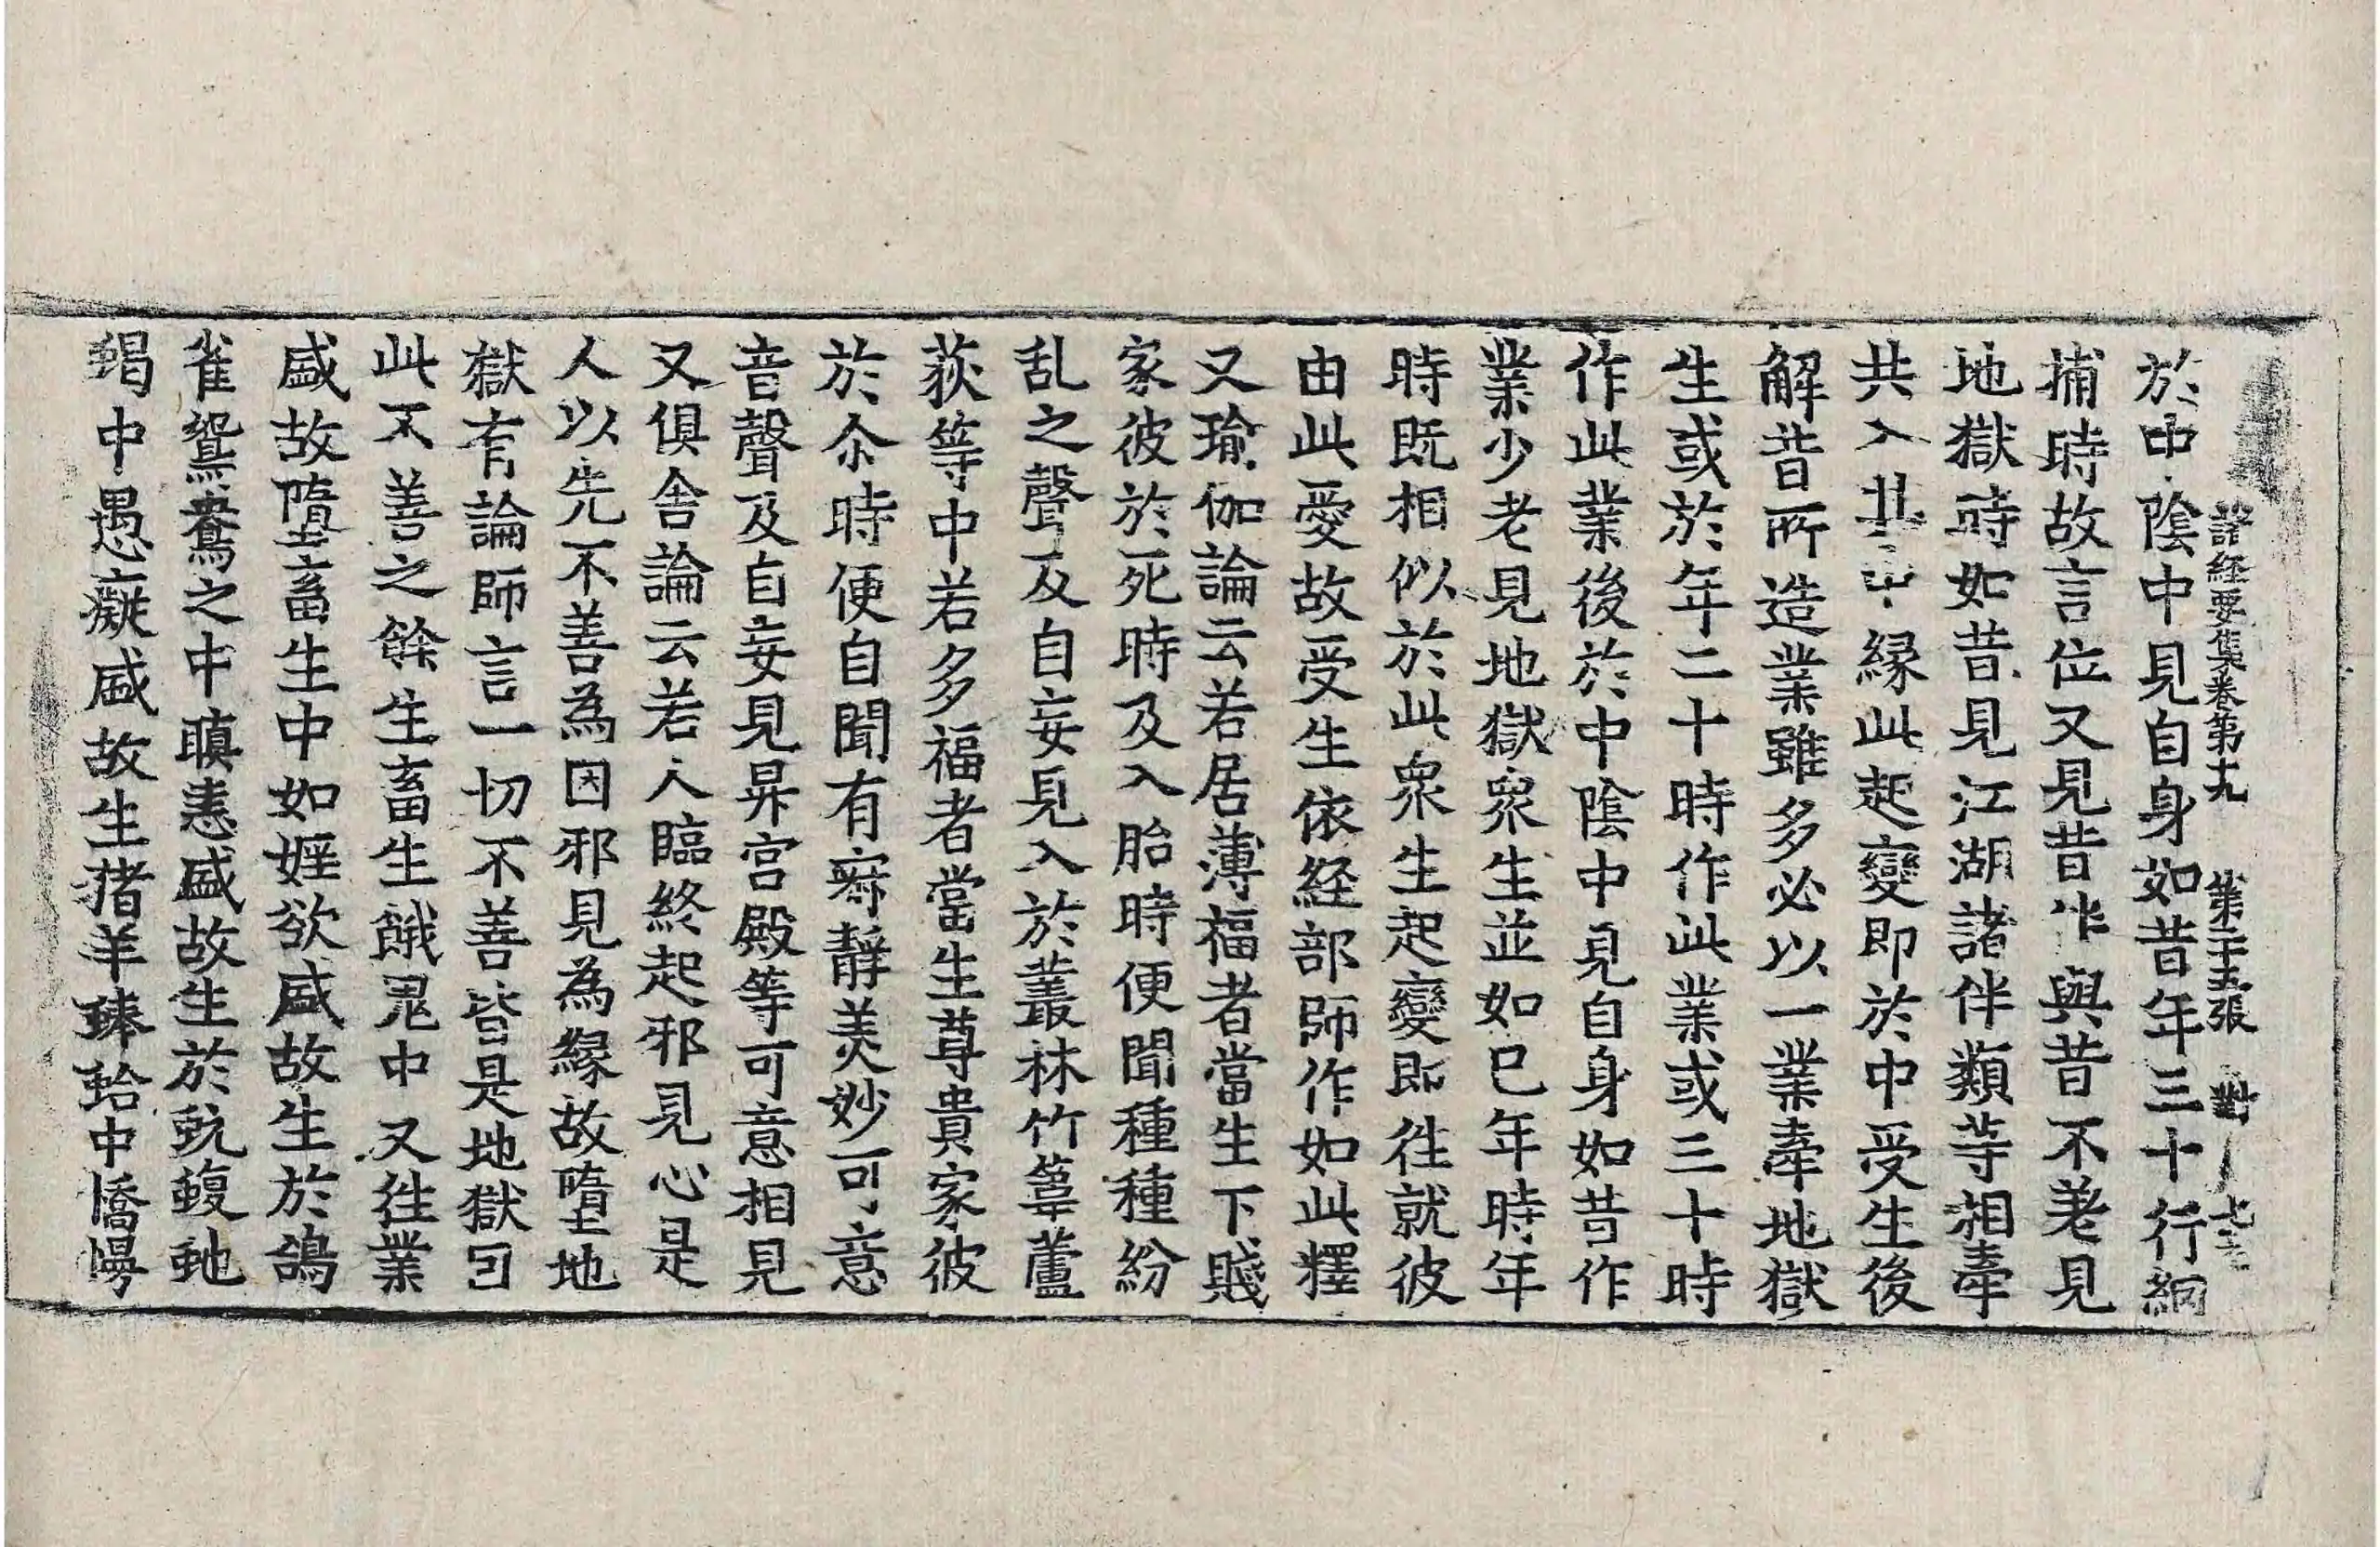 諸經要集卷第十九 第二十五張 對
於中陰中見自身如昔年三十行網
捕時故言位又見昔作與昔不差見
地獄時如昔見江湖諸伴類等相牽
共入其中緣此起變即於中受生後
解昔所造業雖多必以一業牽地獄
生或於年二十時作此業或三十時
作此業後於中陰中見自身如昔作
業少老見地獄眾生並如已年時年
時既相似於此衆生起變即往就彼
由此愛故受生依経部師作如此釋
又瑜伽論云若居薄福者當生下賤
家彼於死時及入胎時便聞種種紛
乱之聲及自妄見入於叢林竹葦蘆
荻等中若多福者當生尊貴家彼
於尒時便自聞有寂靜美妙可意
音聲及自妄見昇宮殿等可意相見
又俱舍論云若人臨終起邪見心是
人以先不善為因邪見為緣故墮地
獄有論師言一切不善皆是地獄因
此不善之餘生畜生餓鬼中又往業
盛故墮畜生中如婬欲盛故生於鴿
雀鴛鴦之中瞋恚盛故生於蚖蝮虵
蝎中愚癡盛故生猪羊蜯蛤中憍慢